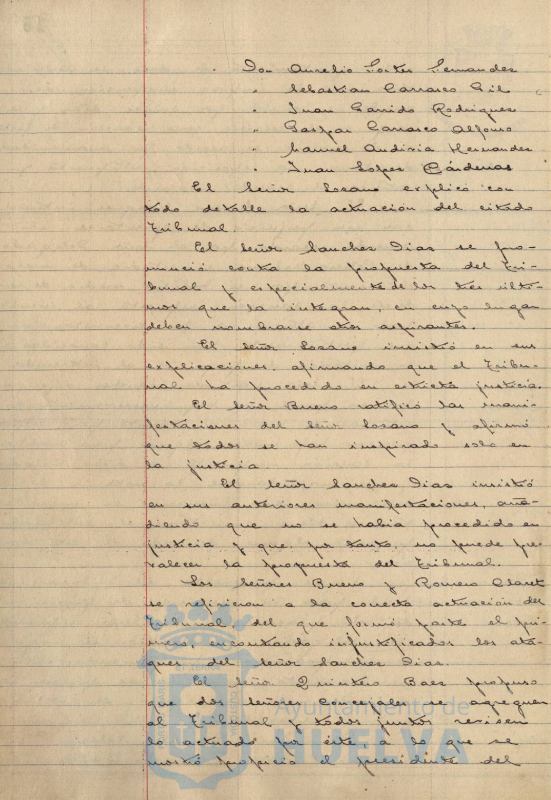 Don Aurelio Fortes Fernandez
" Sebastian Carrasco Gil
" Juan Garrido Rodriguez
" Gaspar Carrasco Alfonso
" Manuel Andivia Hernandez
" Juan Lopez Cárdenas
El Señor Lozano explicó con
todo detalle la actuación del citado
Tribunal.
El Señor Sanchez Dias se pro-
nunció contra la propuesta del Tri-
bunal y especialmente de los tres últi-
mos que la integran, en cuyo lugar
deben nombrarse otros aspirantes.
El Señor Lozano insistió en sus
explicaciones, afirmando que el Tribu-
nal ha procedido en estricta justicia.
El Señor Bueno ratificó las mani-
festaciones del Señor Lozano y afirmó
que todos se han inspirado solo en
la justicia.
El Señor Sanchez Dias insistió
en sus anteriores manifestaciones, aña-
diendo que no se había procedido en
justicia y que, por tanto, no puede pre-
valecer la propuesta del Tribunal.
Los Señores Bueno y Romero Claret
se refirieron a la correcta actuación del
Tribunal, del que formó parte el pri-
mero, encontrando injustificados los ata-
ques del Señor Sanchez Dias.
El Señor Quintero Baez propuso
que dos Señores Concejales se agreguen
al Tribunal y todos juntos revisen
lo actuado por éste a lo que se
mostró propicio el presidente del
Ayuntamiento de
HUELVA